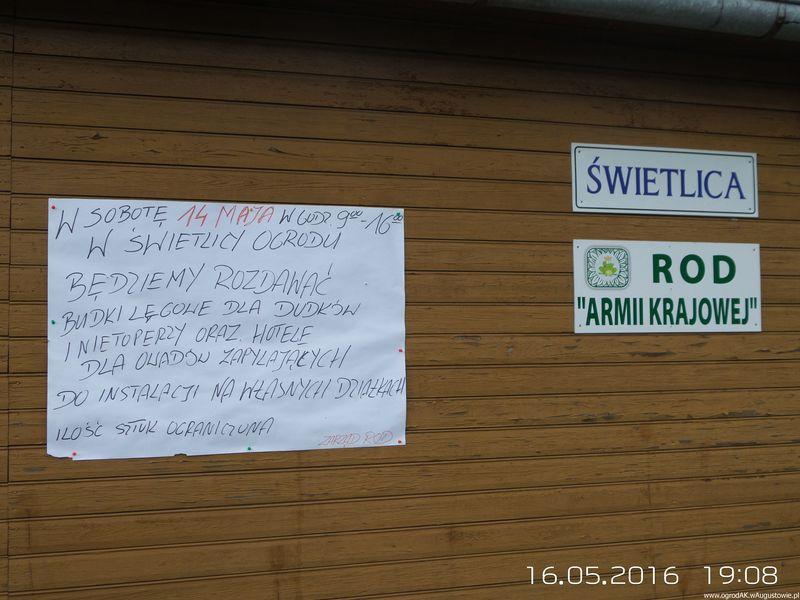 W SOBOTĘ 14 MAJA W GODZ. 9⁰⁰-16⁰⁰
W ŚWIETLICY OGRODU
BĘDZIEMY ROZDAWAĆ
BUDKI LĘGOWE DLA DUDKÓW
I NIETOPERZY ORAZ HOTELE
DLA OWADÓW ZAPYLAJĄCYCH
DO INSTALACJI NA WŁASNYCH DZIAŁKACH
ILOŚĆ SZTUK OGRANICZONA
ZARZĄD ROD
ŚWIETLICA
ROD
"ARMII KRAJOWEJ"
16.05.2016 19:08
www.ogrodAK.wAugustowie.pl